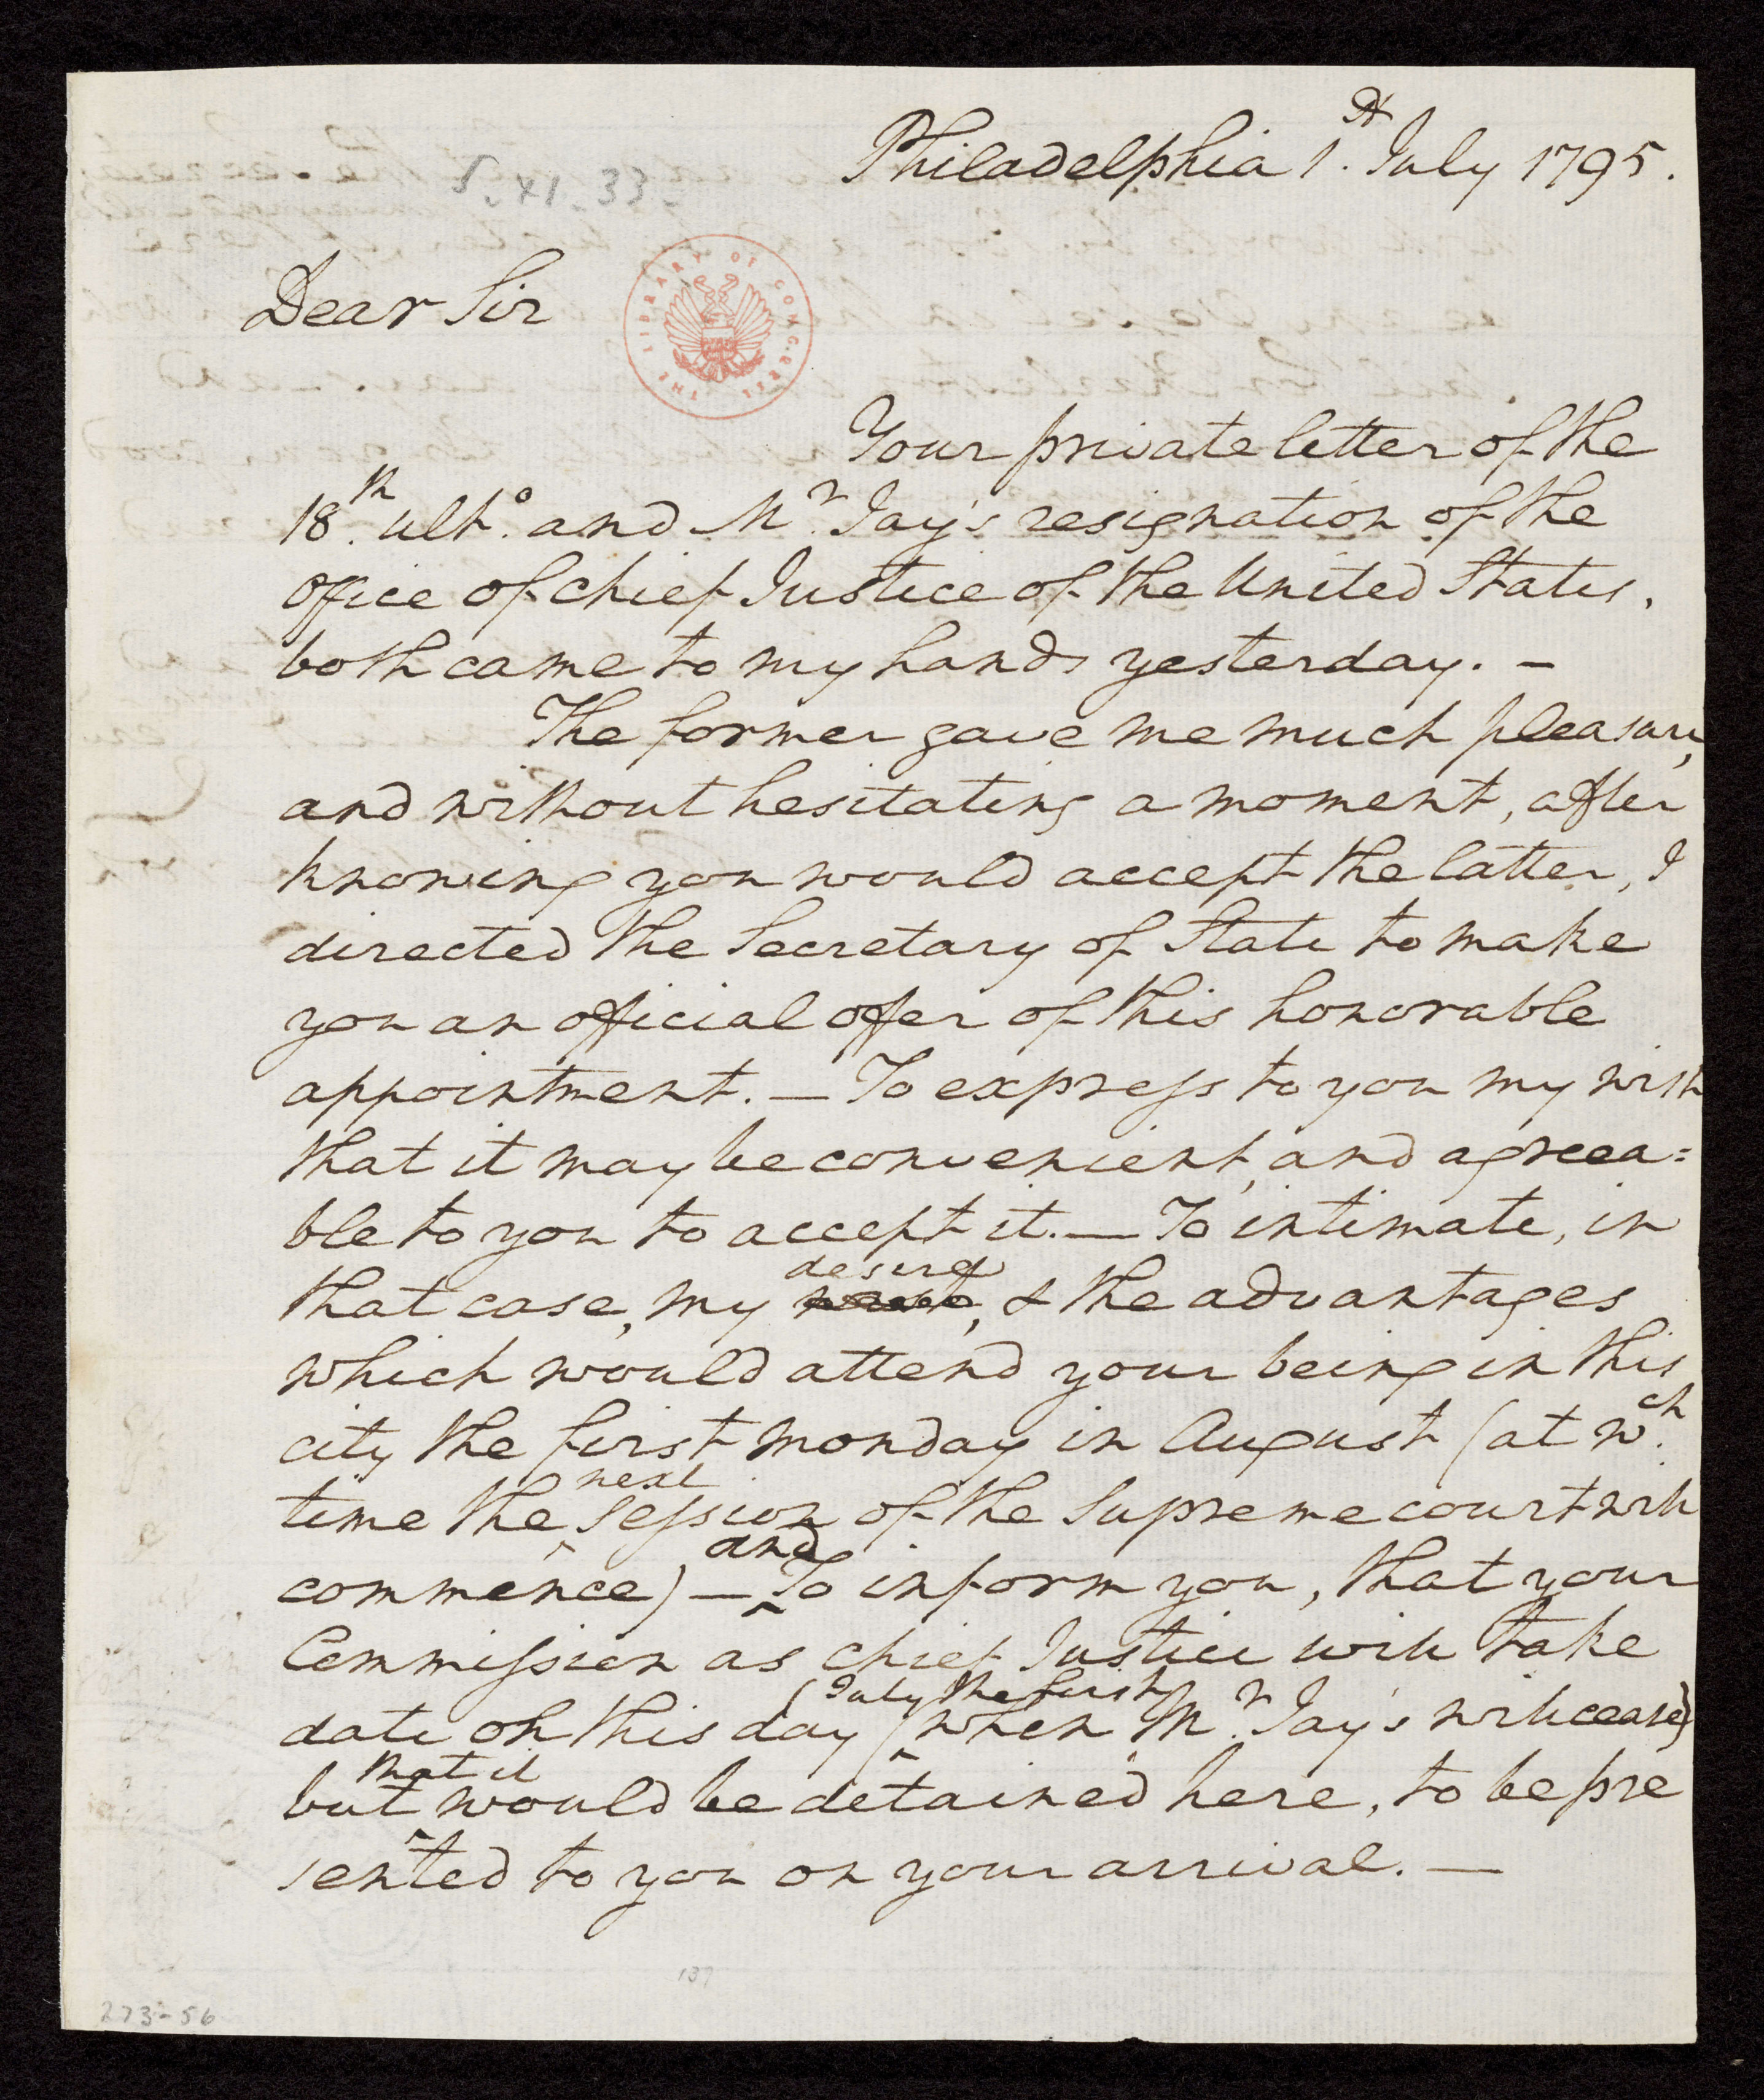 Philadelphia 1st. July 1795.
5.41.33-
Dear Sir
THE LIBRARY OF CONGRESS
Your private letter of the
18th. ulto. and Mr. Jay's resignation of the
office of chief Justice of the United States,
both came to my hands yesterday. —
The former gave me much pleasure,
and without hesitating a moment, after
knowing you would accept the latter, I
directed the Secretary of State to make
you an official offer of this honorable
appointment. — To express to you my wish
that it may be convenient, and agreea=
ble to you to accept it. — To intimate, in
desire
that case, my , & the advantages
which would attend your being in this
city the first monday in August (at wch.
next
time the ^ session of the Supreme court will
and
commence) — ^ To inform you, that your
Commission as chief Justice will take
July the first
date on this day ( ^ when Mr. Jay's will cease)
that it
but ^ would be detained here, to be pre
sented to you on your arrival. —
137
273-56